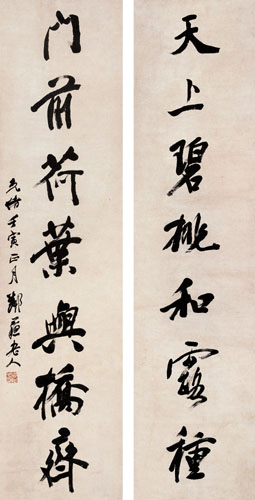 天上碧桃和露種
門前荷葉與橋齊
光緒壬寅正月鄰蘇老人